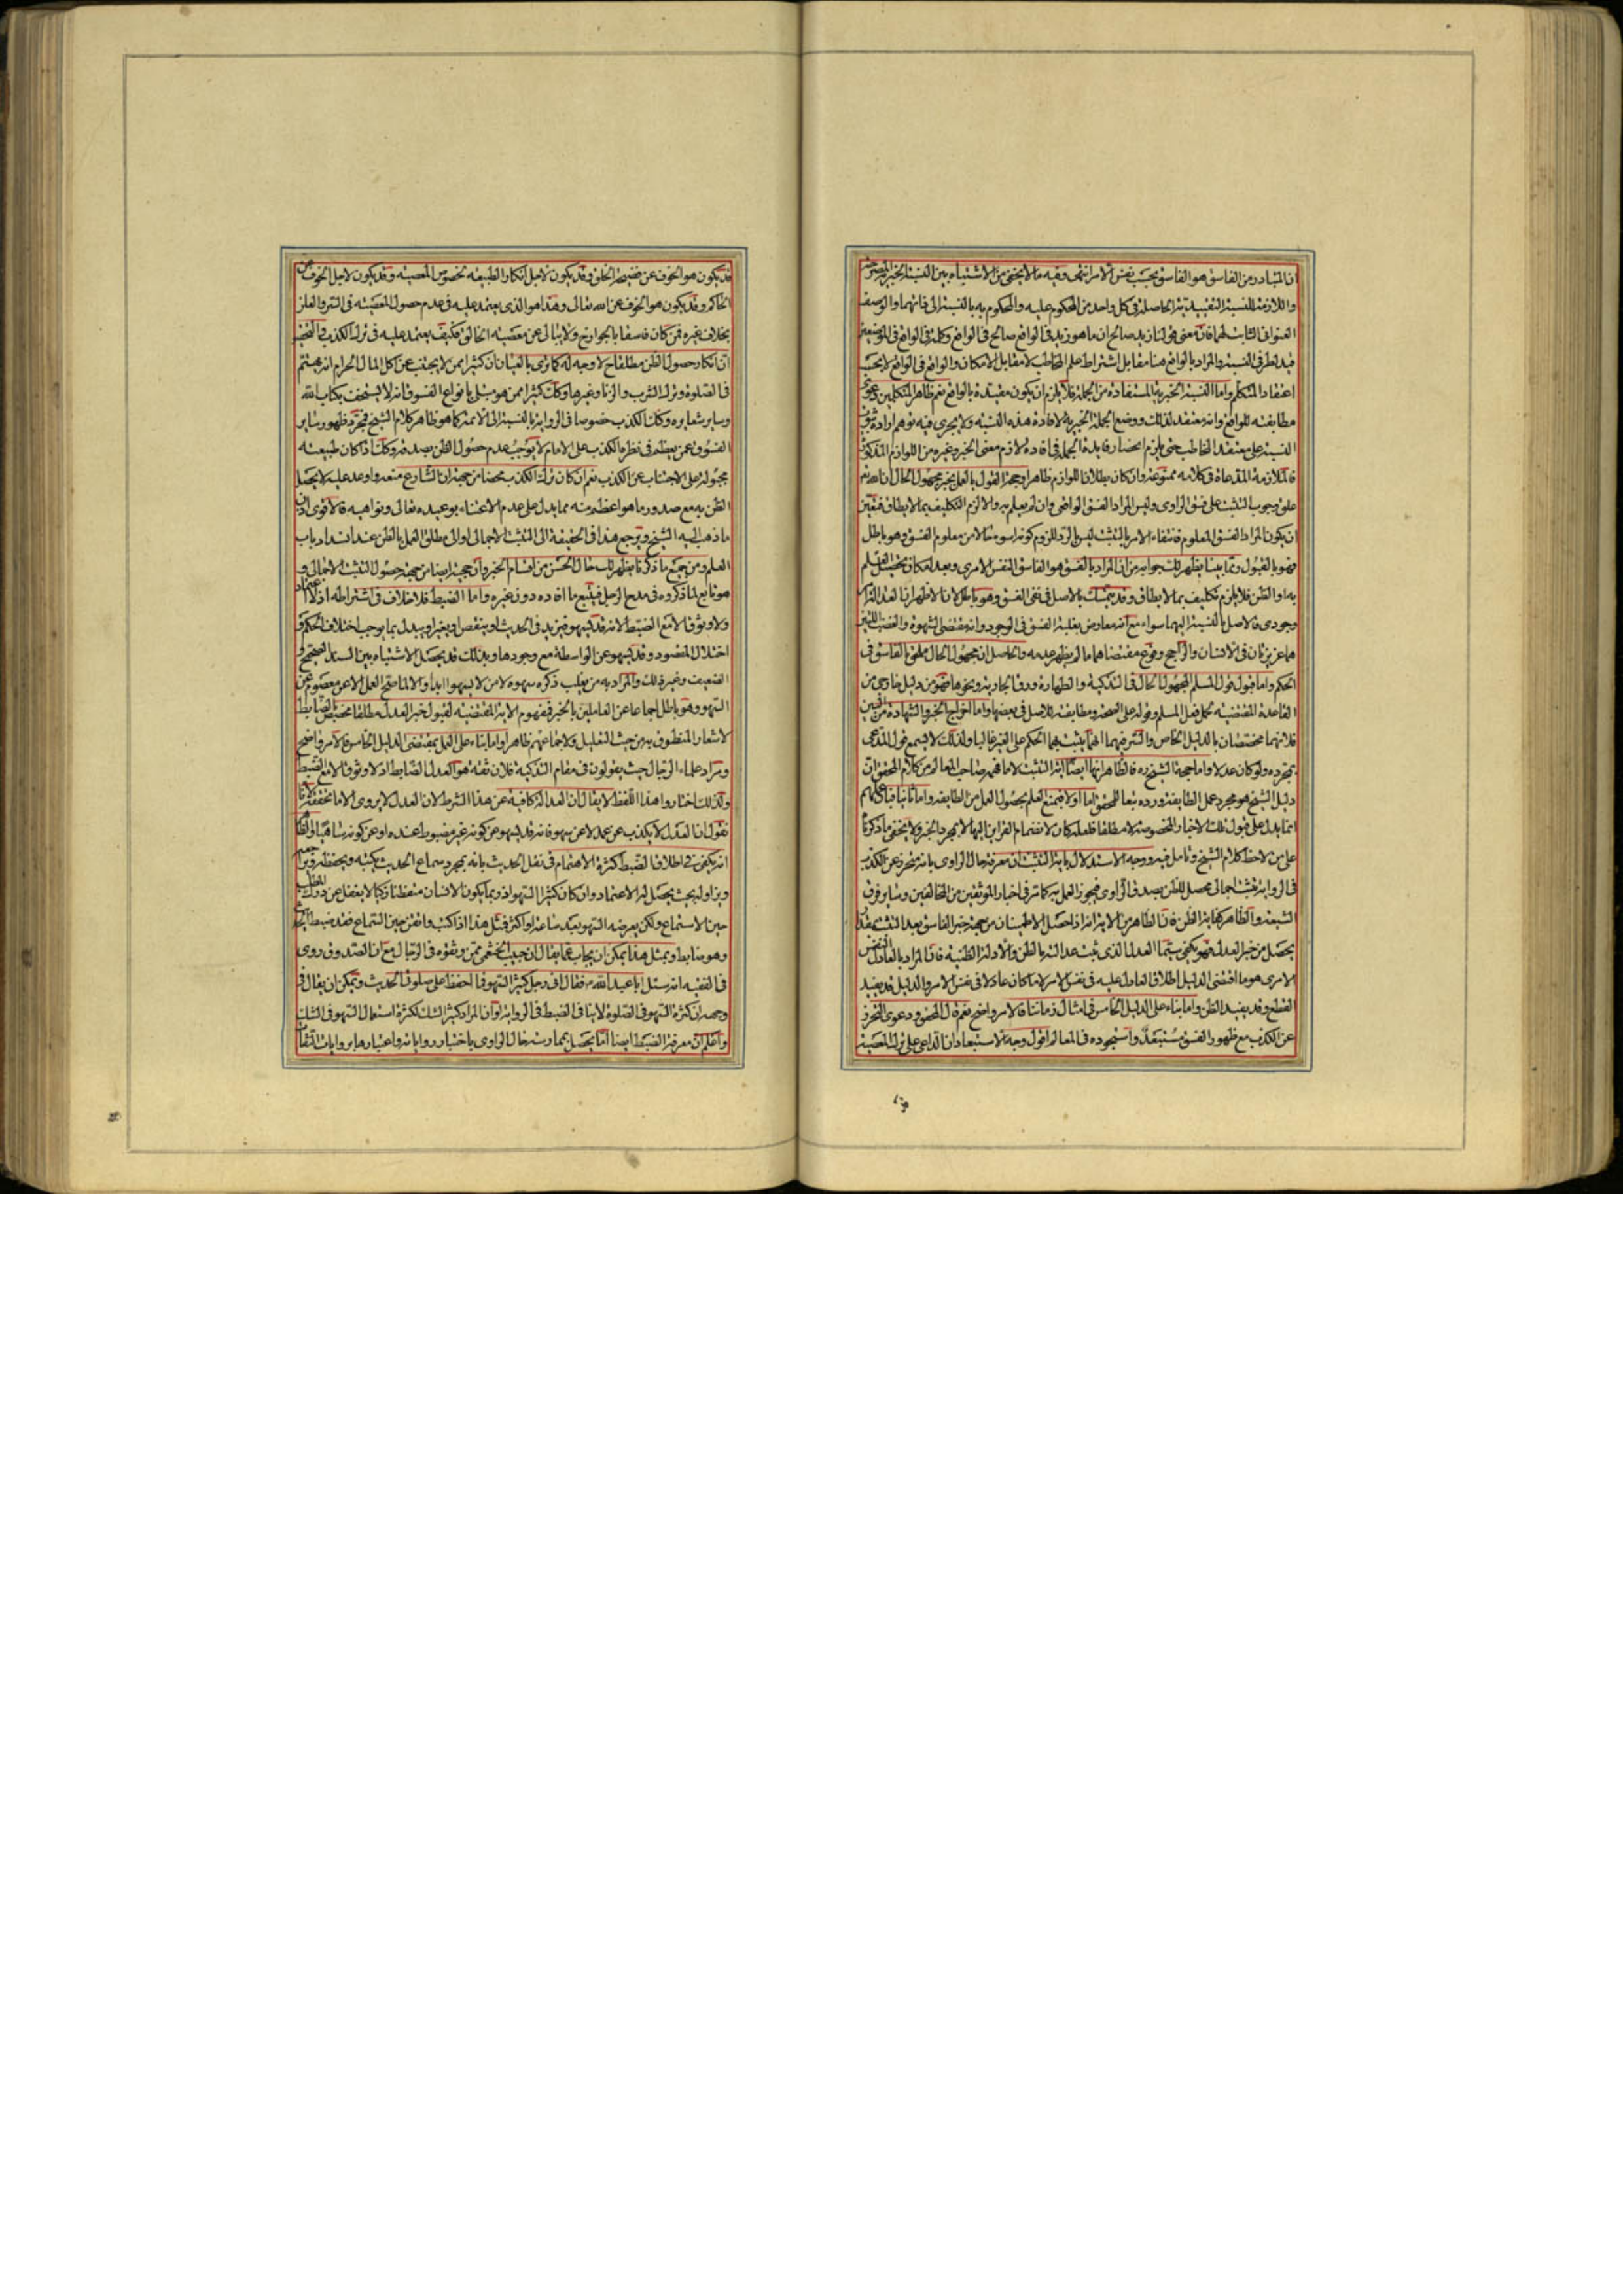 ان المتبادر من الفاسق هو الفاسق بحسب نفس الامر انتهى وفيه ما لا يخفى من الاشتباه بين النسبة الخبرية
واللازمة للنسبة التقييدية الحاصلة في كل واحد من المحكوم عليه والمحكوم به بالنسبة الى ذاتهما والوصف
العنواني الثابت لهما فان معنى قولنا زيد صالح ان ما هو زيد في الواقع صالح في الواقع وكلمة في الواقع في الموضعين
قيد لطرفي النسبة والمراد بالواقع هنا مقابل اشتراط علم المخاطب لا مقابل الامكان والواقع في الواقع لا بحسب
اعتقاد المتكلم واما النسبة الخبرية المستفادة من الجملة فلا يلزم ان يكون مقيدة بالواقع نعم ظاهر المتكلمين دعوى
مطابقته للواقع وانه معتقد لذلك ووضع الجملة الخبرية لافادة هذه النسبة ولا يجرى فيه توهم ارادة ثبوت
النسبة على معتقد المخاطب حتى يلزم انحصار فايدة الجملة في افادة لازم معنى الخبر وغيره من اللوازم المذكورة
فالملازمة المدعاة في كلامه ممنوعة وان كان بطلان اللوازم ظاهرا وحجة القول بالعمل بخبر مجهول الحال ان الله تع
علق وجوب التثبت على فسق الراوى وليس المراد الفسق الواقعى وان لم يعلم به والا لزم التكليف بما لا يطاق فتعين
ان يكون المراد الفسق المعلوم فانتفاء الامر بالتثبت ليس بالرد للزوم كونه اسوء حالا من معلوم الفسق وهو باطل
فهو بالقبول ومما بينا يظهر لك جوابه من ان المراد بالفسق هو الفاسق النفس الامرى وبعد امكان تحصيل العلم
به او الظن فلا يلزم تكليف بما لا يطاق وقد يتمسك بالاصل في نفى الفسق وهو باطل لانا لاظهر ان العدالة امر
وجودى فالاصل بالنسبة اليهما سواء مع انه معارض بغلبة الفسق في الوجود وانه مقتضى الشهوة والغضب اللتين
هما غريزتان في الانسان والراجح وقوع مقتضاهما ما لم يظهر عدمه والحاصل ان مجهول الحال ملحق بالفاسق في
الحكم واما قبول قول المسلم المجهول الحال في التذكية والطهارة ورق الجارية ونحوها فهو من دليل خارجى من
القاعدة المقتضية لحمل فعل المسلم وقوله على الصحة ومطابقته للاصل في بعضها واما اخراج الخبر والشهادة من البين
فلانهما مختصتان بالدليل الخاص والسر فيهما انهما يثبت بهما الحكم على الغير غالبا ولذلك لا يسمع قول المدعى
بمجرده ولو كان عدلا واما حجية الشيخ ره فالظاهر انها ايضا اية التثبت لا ما فهمه صاحب المعالم من كلام المحقق ان
دليل الشيخ هو مجرد عمل الطايفة ورده تبعا للمحقق اما اولا فبمنع العلم بحصول العمل من الطايفة واما ثانيا فبان عملهم
انما يدل على قبول تلك الاخبار المخصوصة لا مطلقا فلعله كان لانضمام القراين اليها لا بمجرد الخبر ولا يخفى ما ذكرنا
على من لاحظ كلام الشيخ وتامل فيه ووجه الاستدلال باية التثبت ان معرفة حال الراوى بانه متحرز عن الكذب
في الرواية تثبت اجمالى محصل للظن بصدق الراوى فيجوز العمل به كما مر في اخبار الموثقين من المخالفين وساير فرق
الشيعة والظاهر كفاية الظن فان الظاهر من الاية انه اذا حصل الاطمينان من جهة خبر الفاسق بعد التثبت بقدر
يحصل من خبر العدل فهو يكفى سيما العدل الذى يثبت عدالته بالظن والادلة الظنية فان المراد بالعادل النفس
الامرى هو ما اقتضى الدليل اطلاق العادل عليه في نفس الامر لا ما كان عادلا في نفس الامر والدليل قد يفيد
القطع وقد يفيد الظن واما بناء على الدليل الخامس في امثال زماننا فالامر واضح نعم قال المحقق ودعوى التحرز
عن الكذب مع ظهور الفسق مستبعد واستجوده في المعالم اقول وجه الاستبعاد ان الداعى على ترك المعصية
قد يكون هو الخوف عن فضيحة الخلق وقد يكون لاجل انكار الطبيعة لخصوص المعصية وقد يكون لاجل الخوف من
الحاكم وقد يكون هو الخوف عن الله تعالى وهذا هو الذى يعتمد عليه في عدم حصول المعصية في السر والعلن
بخلاف غيره فمن كان فاسقا بالجوارح ولا يبالى عن معصية الخالق فكيف يعتمد عليه في ترك الكذب والتحقيق
ان انكار حصول الظن مطلقا ح لا وجه له كما نرى بالعيان ان كثيرا ممن لا يجتنب عن اكل المال الحرام انه يهتم
في الصلوة وترك الشرب والزنا وغيرها وكذلك كثيرا ممن هو مبتلى بانواع الفسوق انه لا يستخف بكتاب الله
وساير شعايره وكذلك الكذب خصوصا في الرواية بالنسبة الى الائمة كما هو ظاهر كلام الشيخ فمجرد ظهور ساير
الفسوق عمن يعظم في نظره الكذب على الامام لا يوجب عدم حصول الظن بصدقه وكذلك اذا كان طبيعته
مجبولة على الاجتناب عن الكذب نعم ان كان ترك الكذب محضا من جهة ان الشارع منعه واوعد عليه لا يحصل
الظن به مع صدور ما هو اعظم منه مما يدل على عدم الاعتناء بوعيده تعالى ونواهيه فالاقوى اذن
ما ذهب اليه الشيخ ويرجع هذا في الحقيقة الى التثبت الاجمالى او الى مطلق العمل بالظن عند انسداد باب
العلم ومن جميع ما ذكرنا يظهر لك حال الحسن من اقسام الخبر وان حجيته ايضا من جهة حصول التثبت الاجمالى و
هو تابع لما ذكروه في مدح الرجل فيتبع ما افاده دون غيره واما الضبط فلا خلاف في اشتراطه اذ لا اعتماد
ولا وثوق الا مع الضبط لانه قد يسهو فيزيد في الحديث او ينقص او يغير او يبدل بما يوجب اختلاف الحكم و
اختلال المقصود وقد يسهو عن الواسطة مع وجودها وبذلك قد يحصل الاشتباه بين السند الصحيح و
الضعيف وغير ذلك والمراد به من يغلب ذكره سهوه لا من لا يسهو ابدا والا لما صح العمل الا عن معصوم عن
السهو وهو باطل اجماعا عن العاملين بالخبر فمفهوم الاية المقتضية لقبول خبر العدل مطلقا مخصص بالضابط
لاشعار المنطوق به من حيث التعليل ولاجماعهم ظاهرا واما بناء على العمل بمقتضى الدليل الخامس فالامر واضح
ومراد علماء الرجال حيث يقولون في مقام التذكية فلان ثقة هو العدل الضابط اذ لا وثوق الا مع الضبط
ولذلك اختاروا هذا اللفظ لا يقال ان العدالة كافية عن هذا الشرط لان العدل لا يروى الا ما تحققه لانا
نقول ان العدل لا يكذب عن عمد لا عن سهو فانه قد يسهو عن كونه غير مضبوط عنده او عن كونه ساهيا والظاهر
انه يكفى في اطلاق الضبط كثرة الاهتمام في نقل الحديث بانه بمجرد سماع الحديث يكتبه ويحفظه ويراجعه
ويزاوله بحيث يحصل له الاعتماد وان كان كثير السهو اذ ربما يكون الانسان متفطنا ذكيا لا يغفل عن درك المطلب
حين الاستماع ولكن يعرضه السهو بعد ساعة او اكثر فمثل هذا اذا كتب واتقن حين السماع فقد ضبط الحديث
وهو ضابط وبمثل هذا يمكن ان يجاب عما يقال ان حبيب الخثعمى ممن وثقوه في الرجال مع ان الصدوق روى
في الفقيه انه سئل ابا عبد الله ع فقال انى رجل كثير السهو فما احفظ على صلوتى الحديث ويمكن ان يقال في
وجهه ان كثرة السهو في الصلوة لا ينافى الضبط في الرواية او ان المراد كثير الشك لكثرة استعمال السهو في الشك
واعلم ان معرفة الضبط ايضا انما يحصل بممارسة حال الراوى باختبار رواياته واعتبارها بروايات الثقات